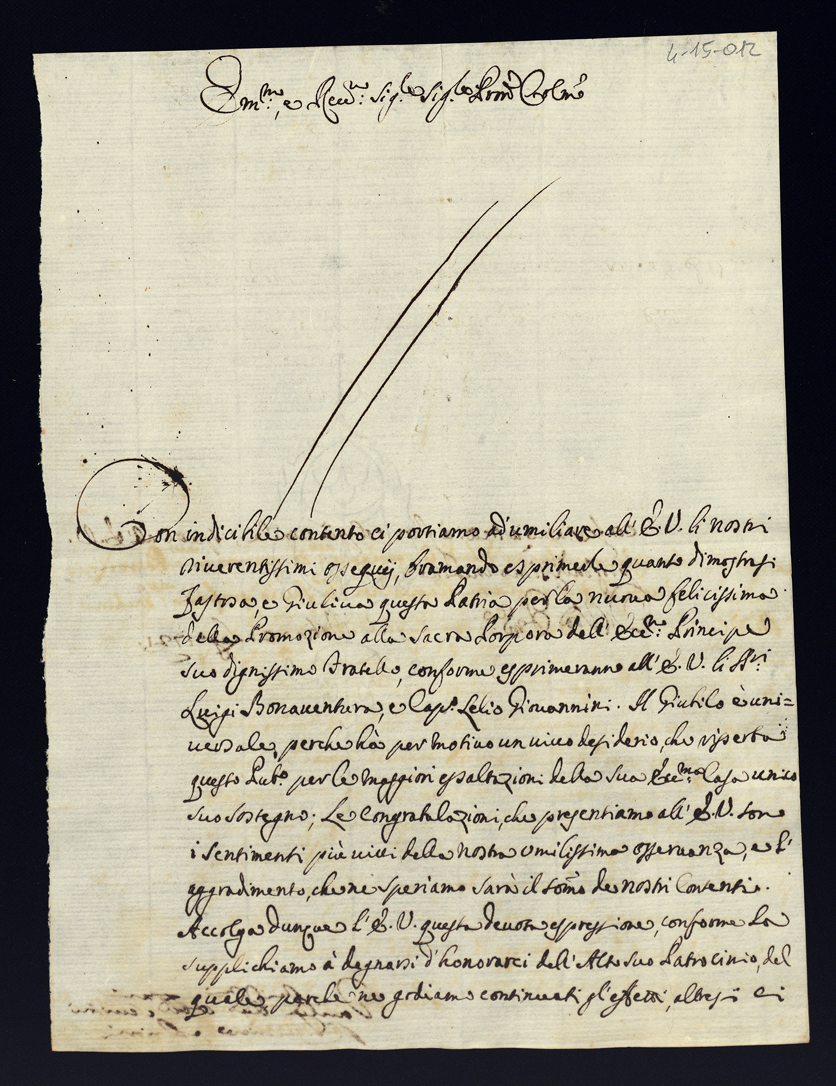 4-15-012
Em.mo, e Reu.mo Sig.re Sig.re Pron Colmo
Con indicibile contento ci portiamo ad umiliare all' E. V. li nostri
riuerentissimi ossequij, bramando esprimerle quanto dimostrasi
fastosa, e Giuliua questa Patria per la nuoua felicissima
della Promozione alla Sacra Porpora dell' Ecc.mo Principe
suo dignissimo Fratello, conforme esprimeranno all' E. V. li SS.ri
Luigi Bonauentura, e Cap.o Lelio Giouannini. Il Giubilo è uni=
uersale, perche hà per motiuo un uiuo desiderio, che riserba
questo Pub.o per le maggiori essaltazioni della sua Ecc.ma Casa unico
suo sostegno; Le Congratulazioni, che presentiamo all' E. V. sono
i sentimenti più uiui della nostra umilissima osseruanza, e l'
aggradimento, che ne speriamo sarà il somo de nostri Contenti.
Accolga dunque l' E. V. questa deuota espressione, conforme la
supplichiamo à degnarsi d' honorarci dell' Alto suo Patrocinio, del
quale perche ne godiamo continuati gl' effetti, altresì ci